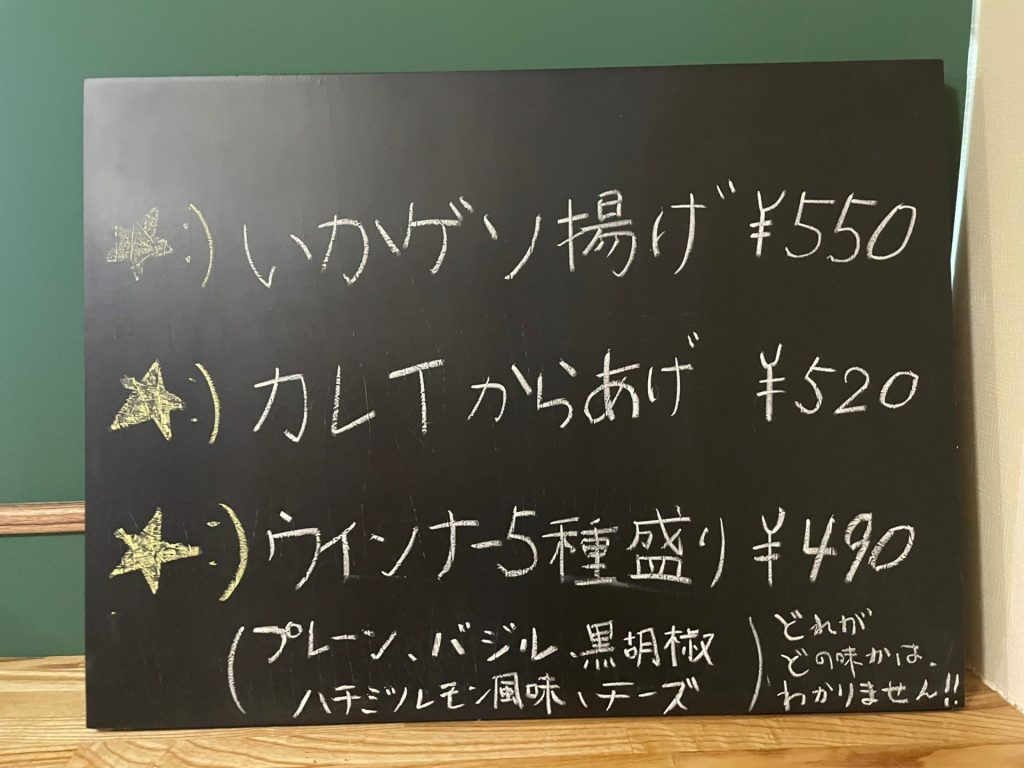 ★:) いかゲソ揚げ ¥550
★:) カレイからあげ ¥520
★:) ウインナー5種盛り ¥490
(プレーン、バジル、黒胡椒
ハチミツレモン風味、チーズ)
どれが
どの味かは、
わかりません!!